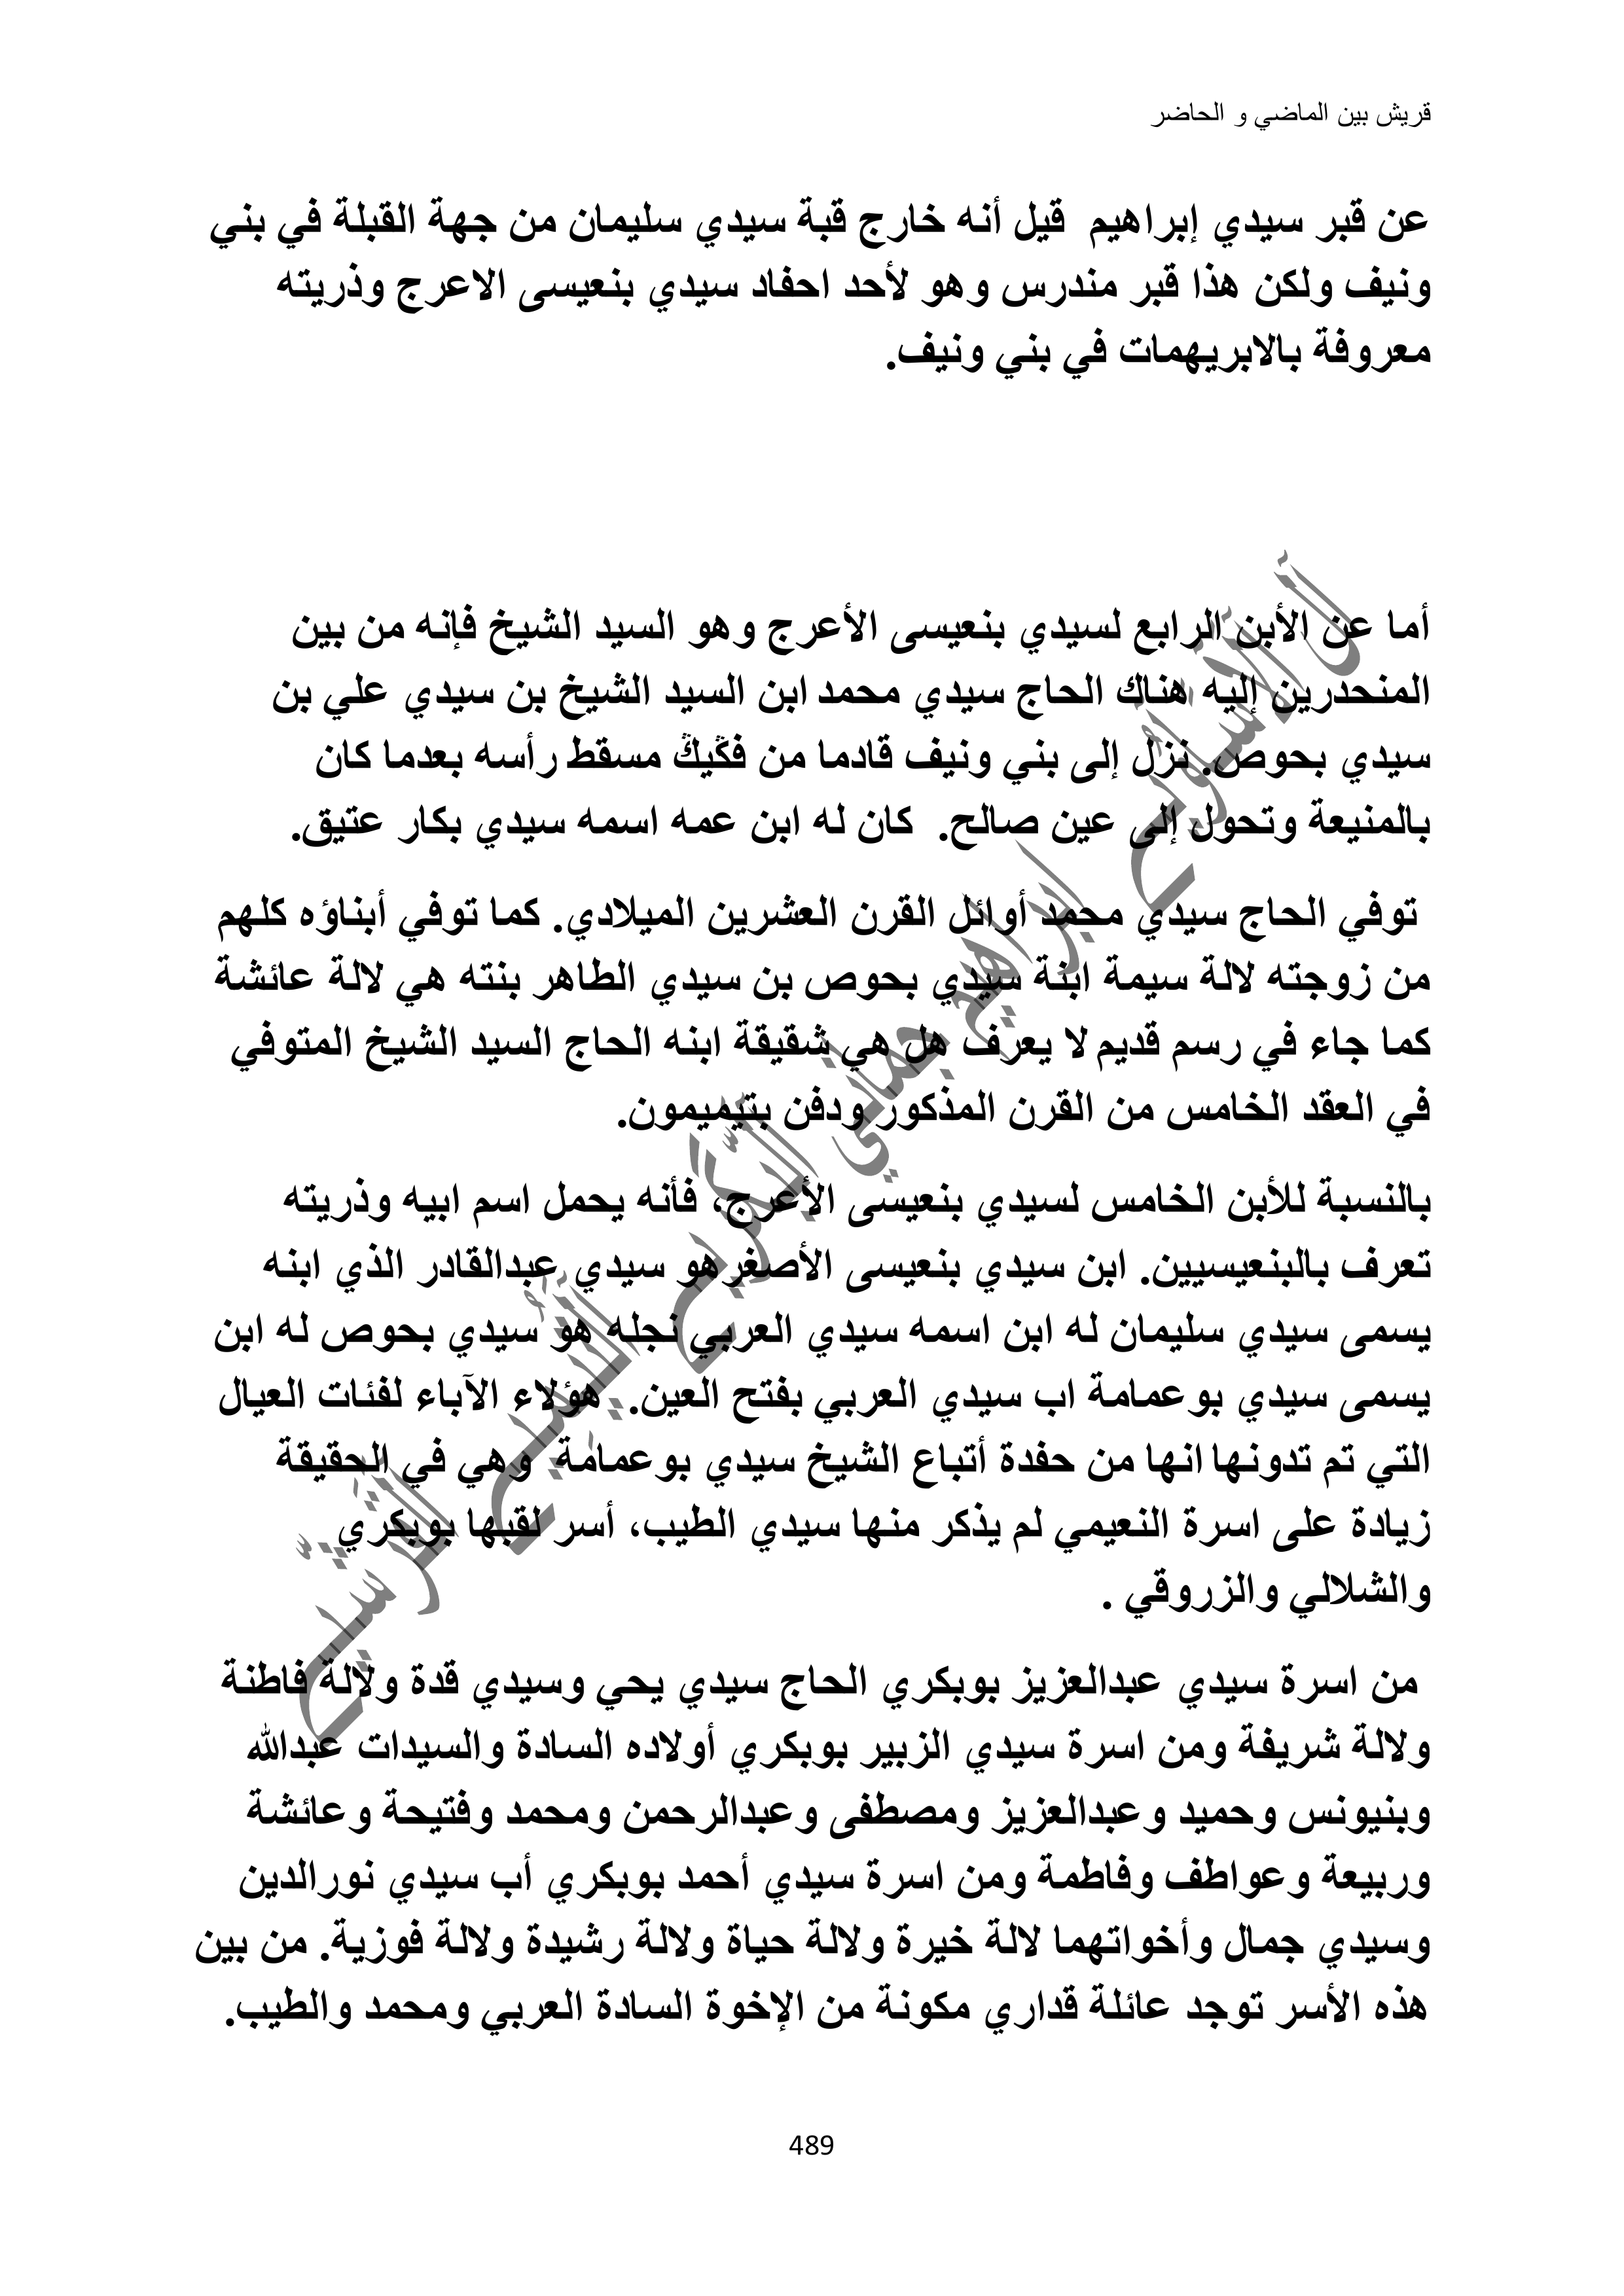 قريش بين الماضي و الحاضر
عن قبر سيدي إبراهيم قيل أنه خارج قبة سيدي سليمان من جهة القبلة في بني
ونيف ولكن هذا قبر مندرس وهو لأحد احفاد سيدي بنعيسى الاعرج وذريته
معروفة بالابريهمات في بني ونيف.
أما عن الأبن الرابع لسيدي بنعيسى الأعرج وهو السيد الشيخ فإنه من بين
المنحدرين إليه هناك الحاج سيدي محمد ابن السيد الشيخ بن سيدي علي بن
سيدي بحوص. نزل إلى بني ونيف قادما من فڭيڭ مسقط رأسه بعدما كان
بالمنيعة وتحول إلى عين صالح. كان له ابن عمه اسمه سيدي بكار عتيق.
توفي الحاج سيدي محمد أوائل القرن العشرين الميلادي. كما توفي أبناؤه كلهم
من زوجته لالة سيمة ابنة سيدي بحوص بن سيدي الطاهر بنته هي لالة عائشة
كما جاء في رسم قديم لا يعرف هل هي شقيقة ابنه الحاج السيد الشيخ المتوفي
في العقد الخامس من القرن المذكور ودفن بتيميمون.
بالنسبة للأبن الخامس لسيدي بنعيسى الأعرج، فأنه يحمل اسم ابيه وذريته
تعرف بالبنعيسيين. ابن سيدي بنعيسى الأصغرهو سيدي عبدالقادر الذي ابنه
يسمى سيدي سليمان له ابن اسمه سيدي العربي نجله هو سيدي بحوص له ابن
يسمى سيدي بوعمامة اب سيدي العربي بفتح العين. هؤلاء الآباء لفئات العيال
التي تم تدونها انها من حفدة أتباع الشيخ سيدي بوعمامة وهي في الحقيقة
زيادة على اسرة النعيمي لم يذكر منها سيدي الطيب، أسر لقبها بوبكري
والشلالي والزروقي .
من اسرة سيدي عبدالعزيز بوبكري الحاج سيدي يحي وسيدي قدة ولالة فاطنة
ولالة شريفة ومن اسرة سيدي الزبير بوبكري أولاده السادة والسيدات عبدالله
وبنيونس وحميد وعبدالعزيز ومصطفى وعبدالرحمن ومحمد وفتيحة وعائشة
وربيعة وعواطف وفاطمة ومن اسرة سيدي أحمد بوبكري أب سيدي نورالدين
وسيدي جمال وأخواتهما لالة خيرة ولالة حياة ولالة رشيدة ولالة فوزية. من بين
هذه الأسر توجد عائلة قداري مكونة من الإخوة السادة العربي ومحمد والطيب.
489